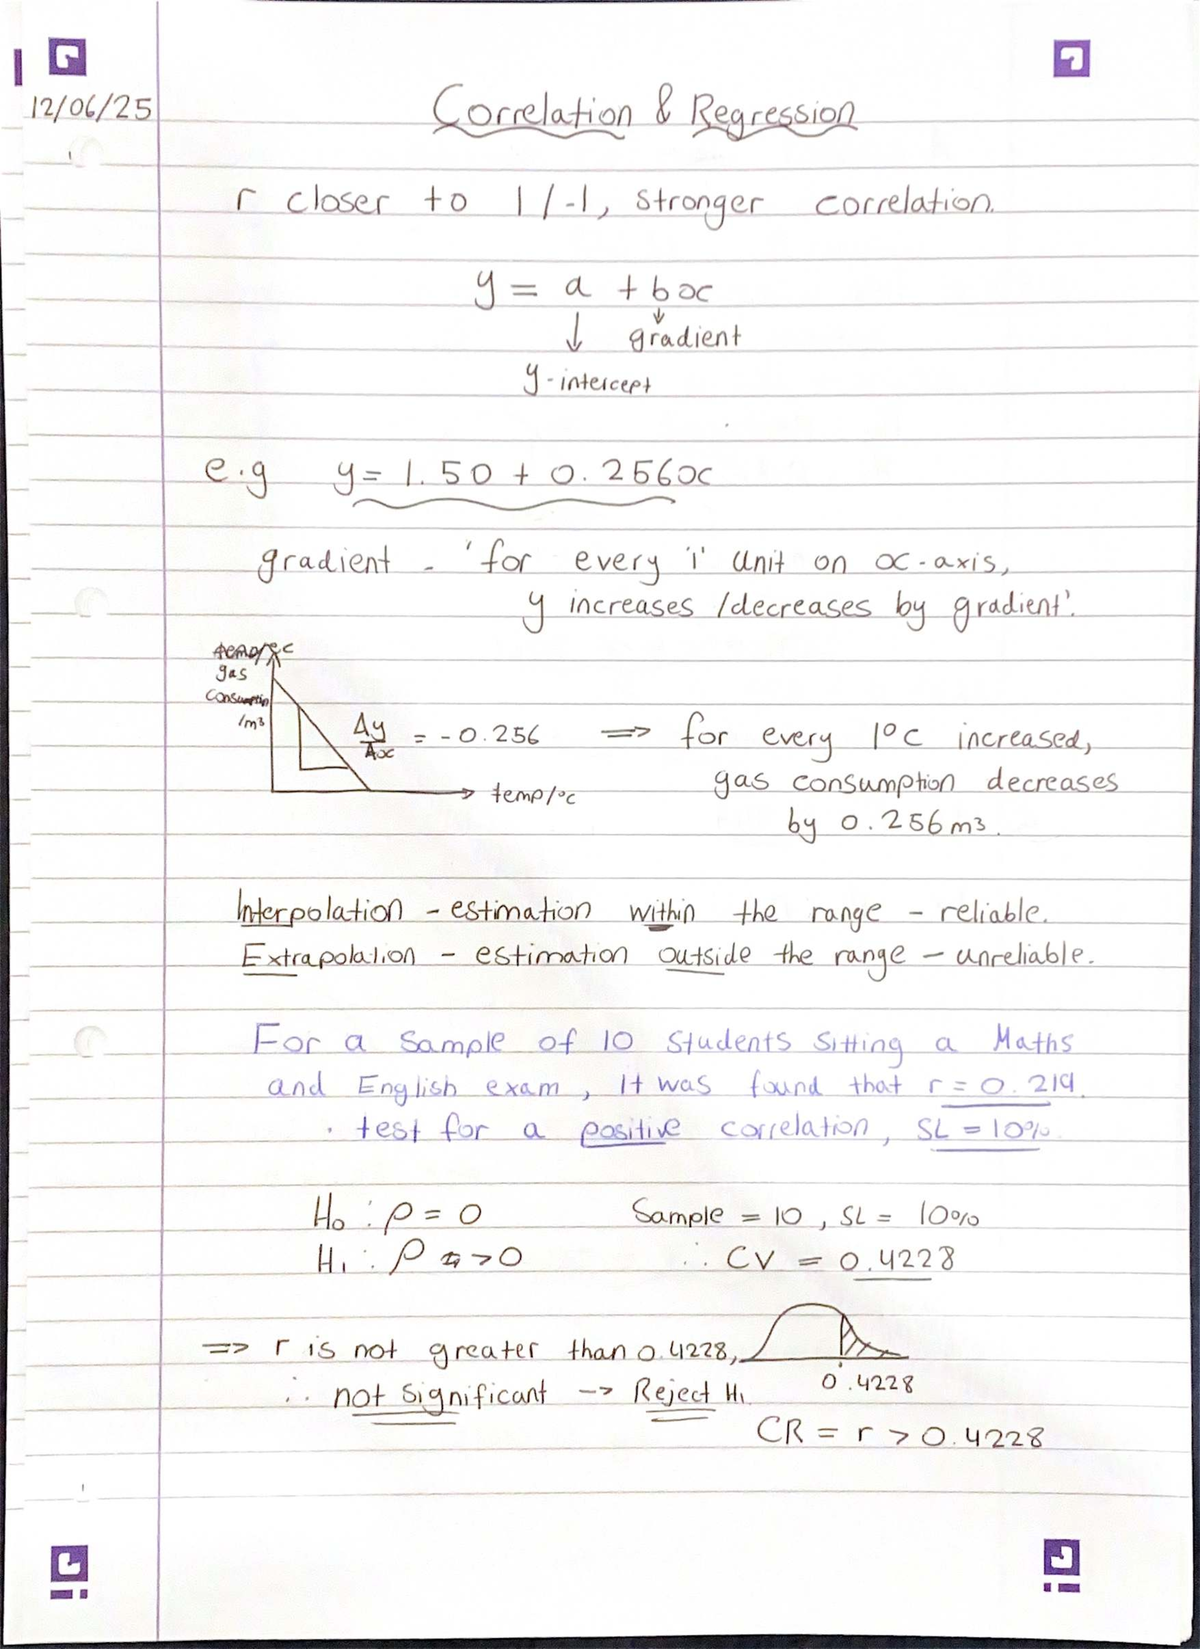 12/06/25
Correlation & Regression
r closer to 1/-1, stronger correlation.
y = a + bx
↓ ↓ gradient
y-intercept
e.g y = 1.50 + 0.256x
gradient - 'for every '1' unit on x-axis,
y increases/decreases by gradient'.
gas
consumption
/m³
Δy/Δx = -0.256 => for every 1°C increased,
gas consumption decreases
by 0.256m³.
temp/°C
Interpolation - estimation within the range - reliable.
Extrapolation - estimation outside the range - unreliable.
For a sample of 10 students sitting a Maths
and English exam, it was found that r = 0.219.
. test for a positive correlation, SL = 10%
H₀ : ρ = 0 Sample = 10, SL = 10%
H₁ : ρ > 0 ∴ CV = 0.4228
=> r is not greater than 0.4228,
∴ not significant --> Reject H₁.
0.4228
CR = r > 0.4228